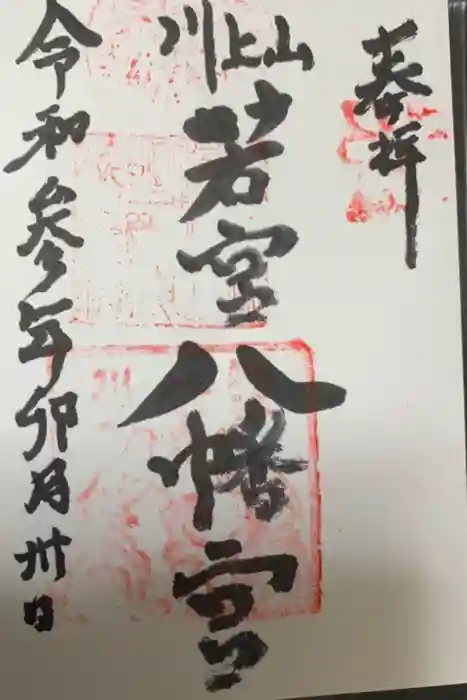 奉拝
川上山
若宮八幡宮
令和参年卯月卅日